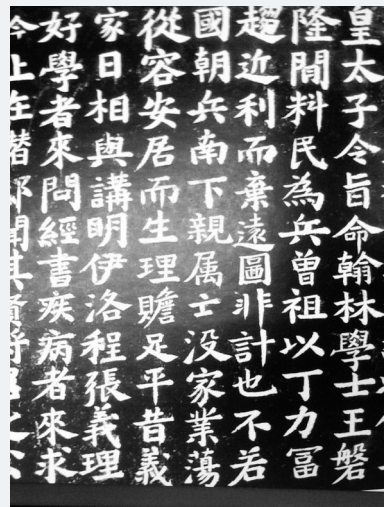 皇太子令旨命翰林學士王磐
隆間料民為兵曽祖以丁力冨
趨近利而棄遠圖非計也不若
國朝兵南下親属士没家業蕩
從容安居而生理贍足平昔義
家日相與講明伊洛程張義理
好學者來問經書疾病者來求
今上在潜邸聞其賢